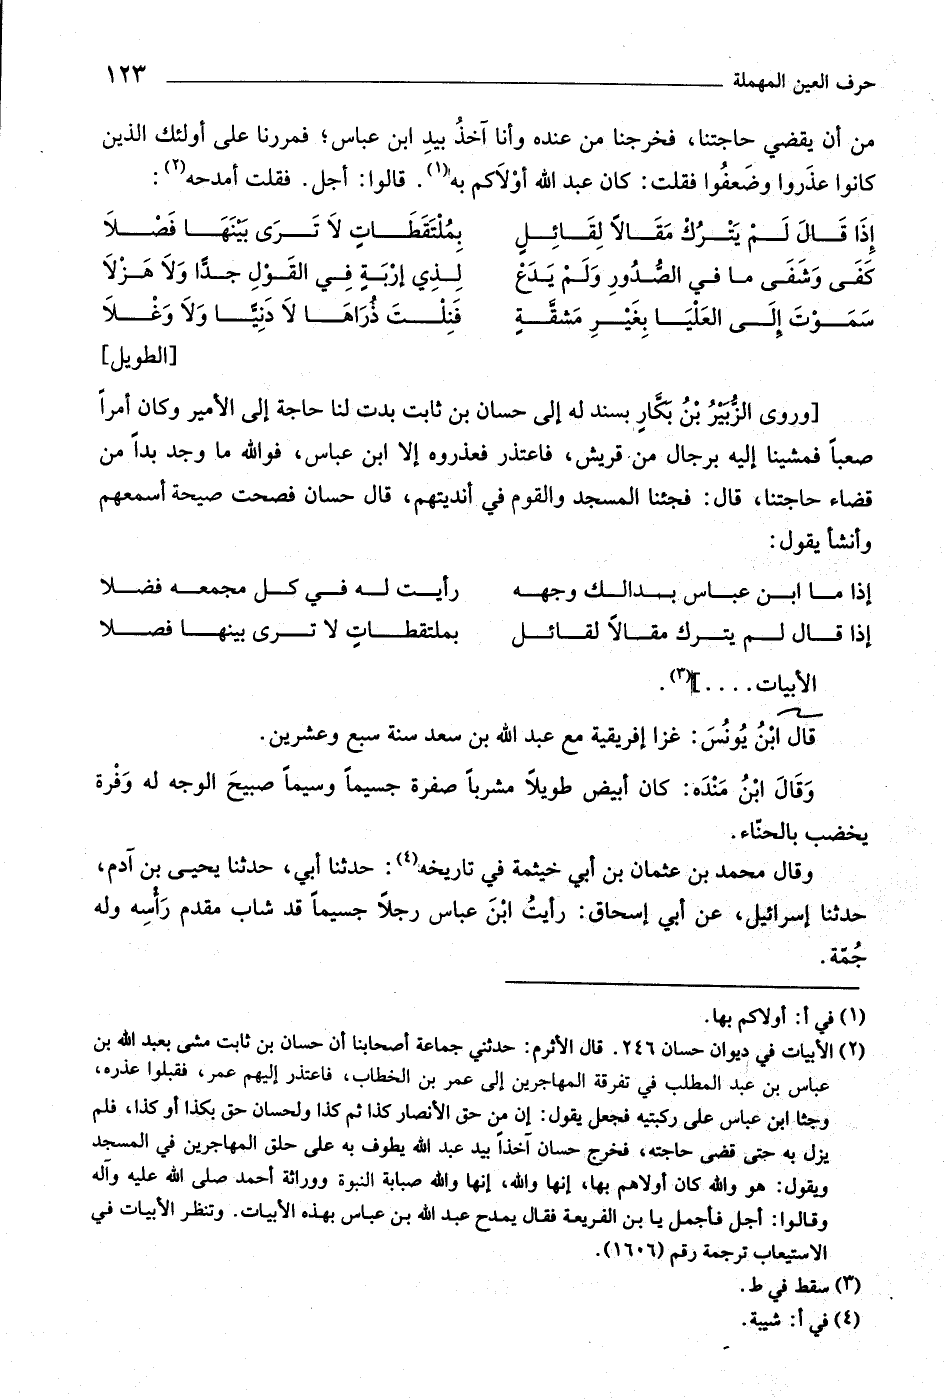 حرف العين المهملة ١٢٣
من أن يقضي حاجتنا، فخرجنا من عنده وأنا آخذُ بيدِ ابن عباس؛ فمررنا على أولئك الذين
كانوا عذَروا وضَعفُوا فقلت: كان عبد الله أوْلَاكم به(١). قالوا: أجل. فقلت أمدحه(٢):
إِذَا قَـالَ لَـمْ يَتْـرُكْ مَقَـالاً لِقَـائِـلٍ بِمُلْتَقَطَـاتٍ لاَ تَـرَى بَيْنَهَـا فَصْـلاَ
كَفَـى وَشَفَـى مـا فـي الصُّدُورِ وَلَـمْ يَدَعْ لِـذِي إرْبَةٍ فِـي القَوْلِ جـدًّا وَلاَ هَزْلاَ
سَمَـوْتَ إِلَـى العَلْيَـا بِغَيْـرِ مَشقَّـةٍ فَنِلْـتَ ذُرَاهَـا لاَ دَنِيَّـا وَلاَ وَغْـلاَ
[الطويل]
[وروى الزُّبَيْرُ بْنُ بَكَّارٍ بسند له إلى حسان بن ثابت بدت لنا حاجة إلى الأمير وكان أمراً
صعباً فمشينا إليه برجال من قريش، فاعتذر فعذروه إلا ابن عباس، فوالله ما وجد بداً من
قضاء حاجتنا، قال: فجئنا المسجد والقوم في أنديتهم، قال حسان فصحت صيحة أسمعهم
وأنشأ يقول:
إذا مـا ابـن عبـاس بـدالـك وجهـه رأيـت لـه فـي كـل مجمعـه فضـلا
إذا قـال لـم يتـرك مقـالاً لقـائـل بملتقطـاتٍ لا تـرى بينهـا فصـلا
الأبيات....](٣).
قَالَ ابْنُ يُونُسَ: غزا إفريقية مع عبد الله بن سعد سنة سبع وعشرين.
وَقَالَ ابْنُ مَنْدَه: كان أبيض طويلاً مشرباً صفرة جسيماً وسيماً صبيحَ الوجه له وَفْرة
يخضب بالحنّاء.
وقال محمد بن عثمان بن أبي خيثمة في تاريخه(٤): حدثنا أبي، حدثنا يحيى بن آدم،
حدثنا إسرائيل، عن أبي إسحاق: رأيتُ ابْنَ عباس رجلاً جسيماً قد شاب مقدم رَأْسِه وله
جُمّة.
(١) في أ: أولاكم بها.
(٢) الأبيات في ديوان حسان ٢٤٦. قال الأثرم: حدثني جماعة أصحابنا أن حسان بن ثابت مشى بعبد الله بن
عباس بن عبد المطلب في تفرقة المهاجرين إلى عمر بن الخطاب، فاعتذر إليهم عمر، فقبلوا عذره،
وجثا ابن عباس على ركبتيه فجعل يقول: إن من حق الأنصار كذا ثم كذا ولحسان حق بكذا أو كذا، فلم
يزل به حتى قضى حاجته، فخرج حسان آخذاً بيد عبد الله يطوف به على حلق المهاجرين في المسجد
ويقول: هو والله كان أولاهم بها، إنها والله، إنها والله صبابة النبوة ووراثة أحمد صلى الله عليه وآله
وقالوا: أجل فأجمل يا بن الفريعة فقال يمدح عبد الله بن عباس بهذه الأبيات. وتنظر الأبيات في
الاستيعاب ترجمة رقم (١٦٠٦).
(٣) سقط في ط.
(٤) في أ: شيبة.